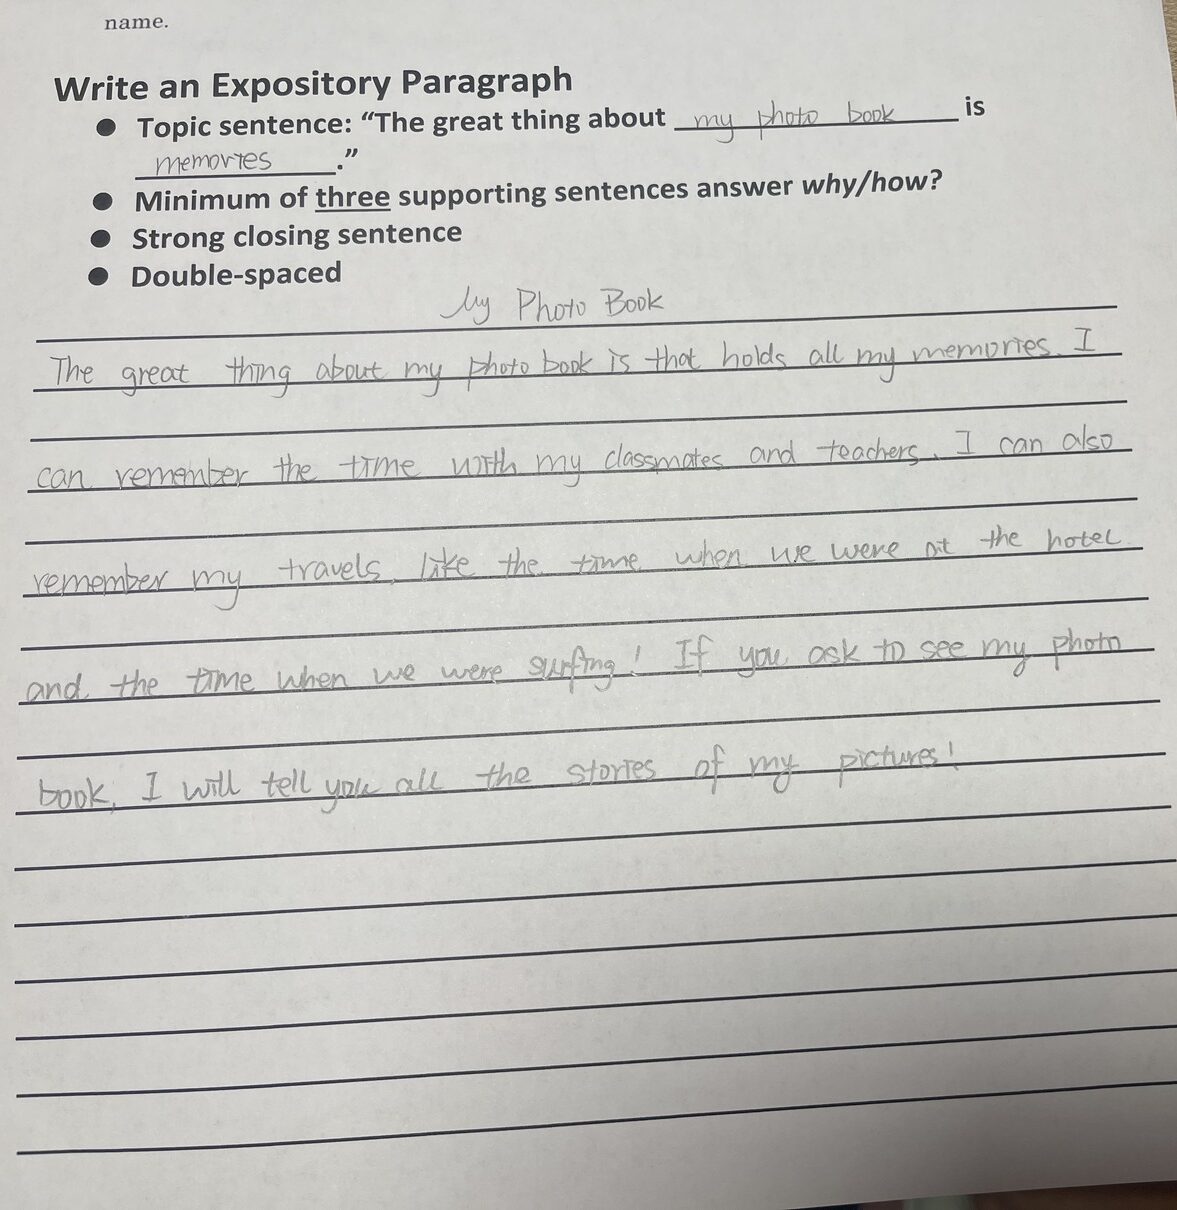 name.
Write an Expository Paragraph
● Topic sentence: “The great thing about my photo book is
memories.”
● Minimum of three supporting sentences answer why/how?
● Strong closing sentence
● Double-spaced
My Photo Book
The great thing about my photo book is that holds all my memories. I
can remember the time with my classmates and teachers. I can also
remember my travels, like the time when we were at the hotel
and the time when we were surfing! If you ask to see my photo
book, I will tell you all the stories of my pictures!